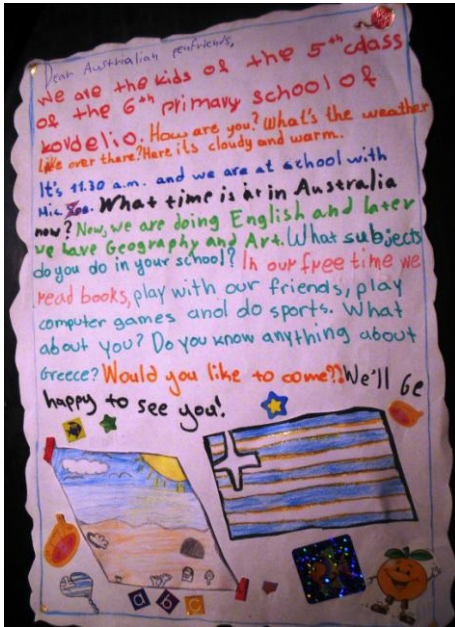 Dear Australian penfriends,
We are the kids of the 5th class
of the 6th primary school of
kordelio. How are you? What's the weather
like over there? Here its cloudy and warm.
It's 11.30 a.m. and we are at school with
Zoe. What time is it in Australia
now? Now, we are doing English and later
we have Geography and Art. What subjects
do you do in your school? In our free time we
read books, play with our friends, play
computer games and do sports. What
about you? Do you know anything about
Greece? Would you like to come?? We'll be
happy to see you!
a b c